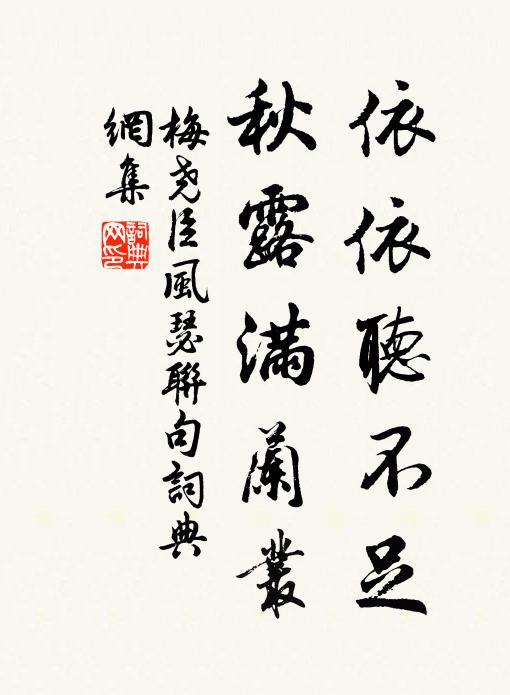 依依聽不足
秋露滿蘭叢
梅堯臣風瑟聯句詞典
網集
詞典網印